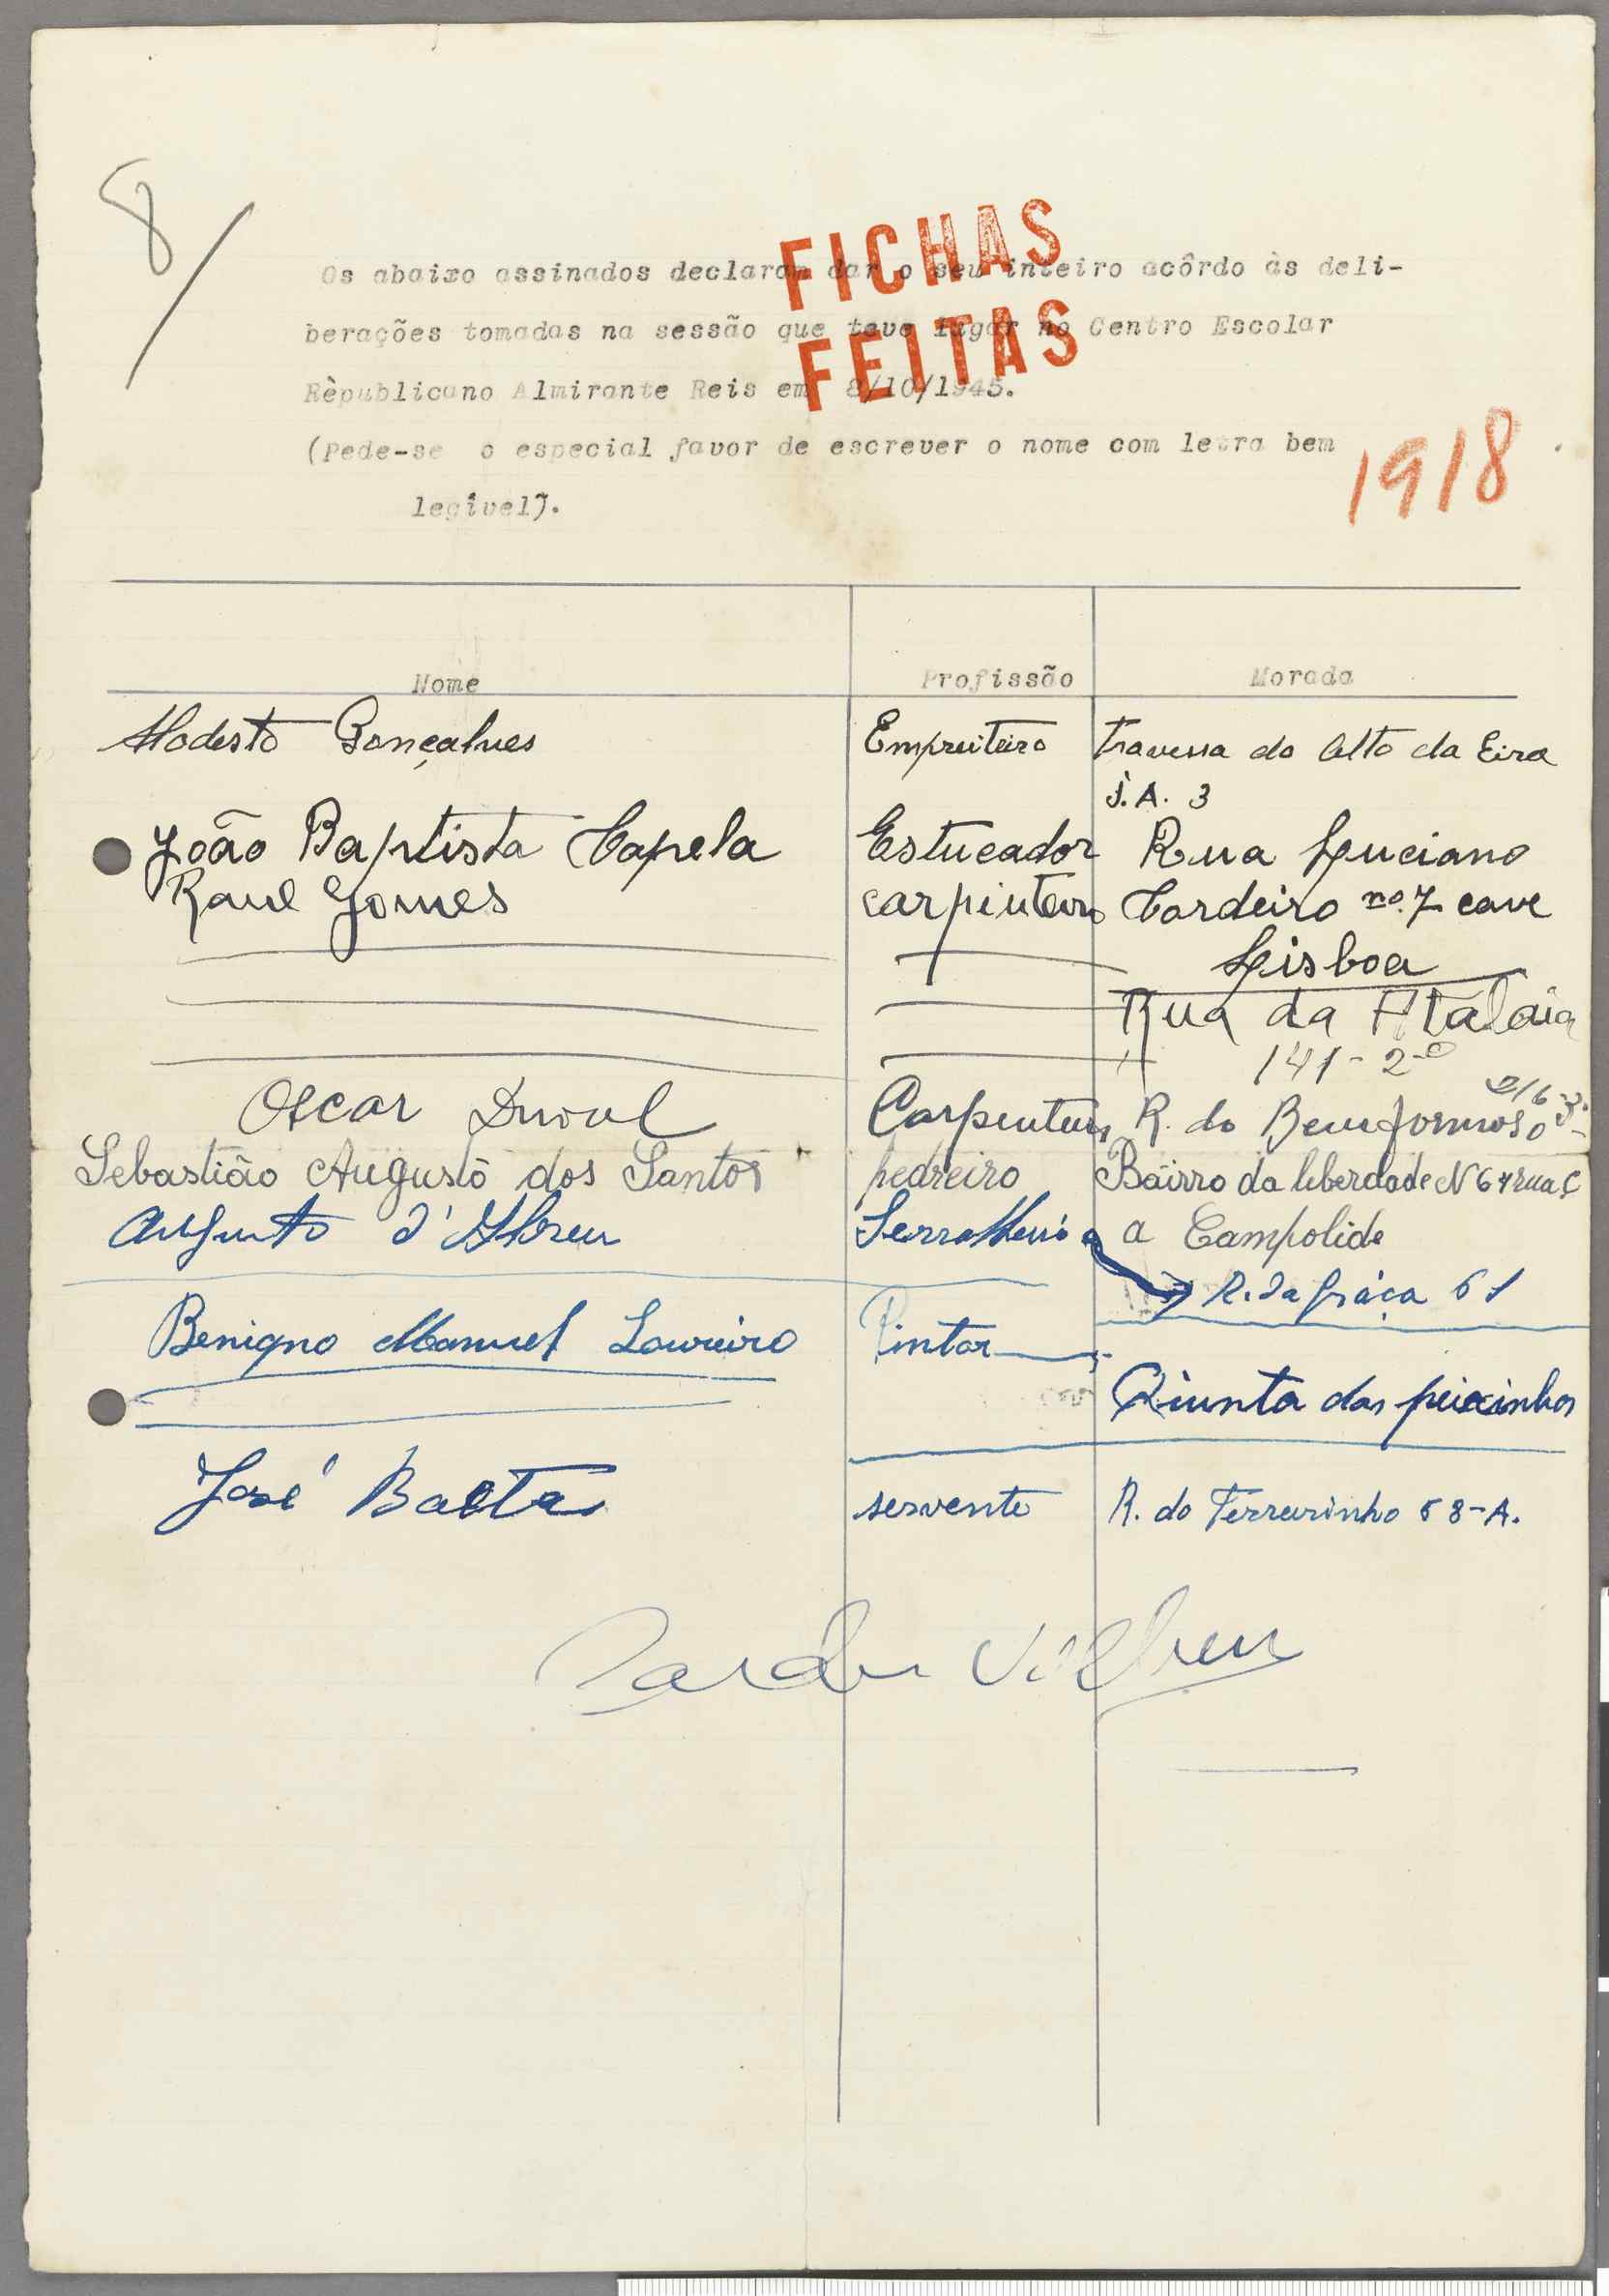 8/
FICHAS
FEITAS
Os abaixo assinados declaram dar o seu inteiro acôrdo às deli-
berações tomadas na sessão que teve lugar no Centro Escolar
Rèpublicano Almirante Reis em 8/10/1945.
(Pede-se o especial favor de escrever o nome com letra bem
legível).
1918
Nome Profissão Morada
Modesto Gonçalves Empreiteiro Travessa do Alto da Eira
J.A. 3
João Baptista Capela Estucador Rua Luciano
Raul Gomes carpinteiro Cordeiro nº 7 cave
Lisboa
Rua da Atalaia
141-2º
Oscar Carpinteiro R. do Bemformoso 216 3º
Sebastião Augusto dos Santos pedreiro Bairro da liberdade N 64 rua C
Augusto d'Abreu Serralheiro a Campolide
R. da Graça 61
Benigno Manuel Loureiro Pintor
Qiunta das peixinhos
José Baeta servente R. do Terreirinho 58-A.